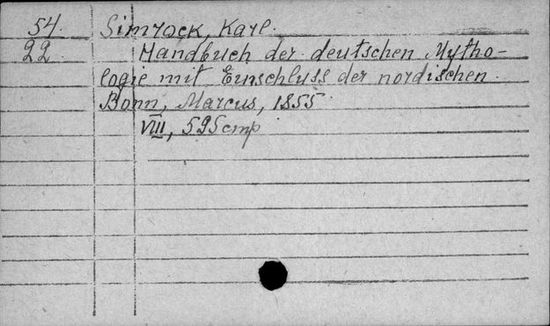 54. Simrock, Karl.
22. Handbuch der deutschen Mytho-
logie mit Einschluss der nordischen.
Bonn, Marcus, 1855
VIII, 595 стр